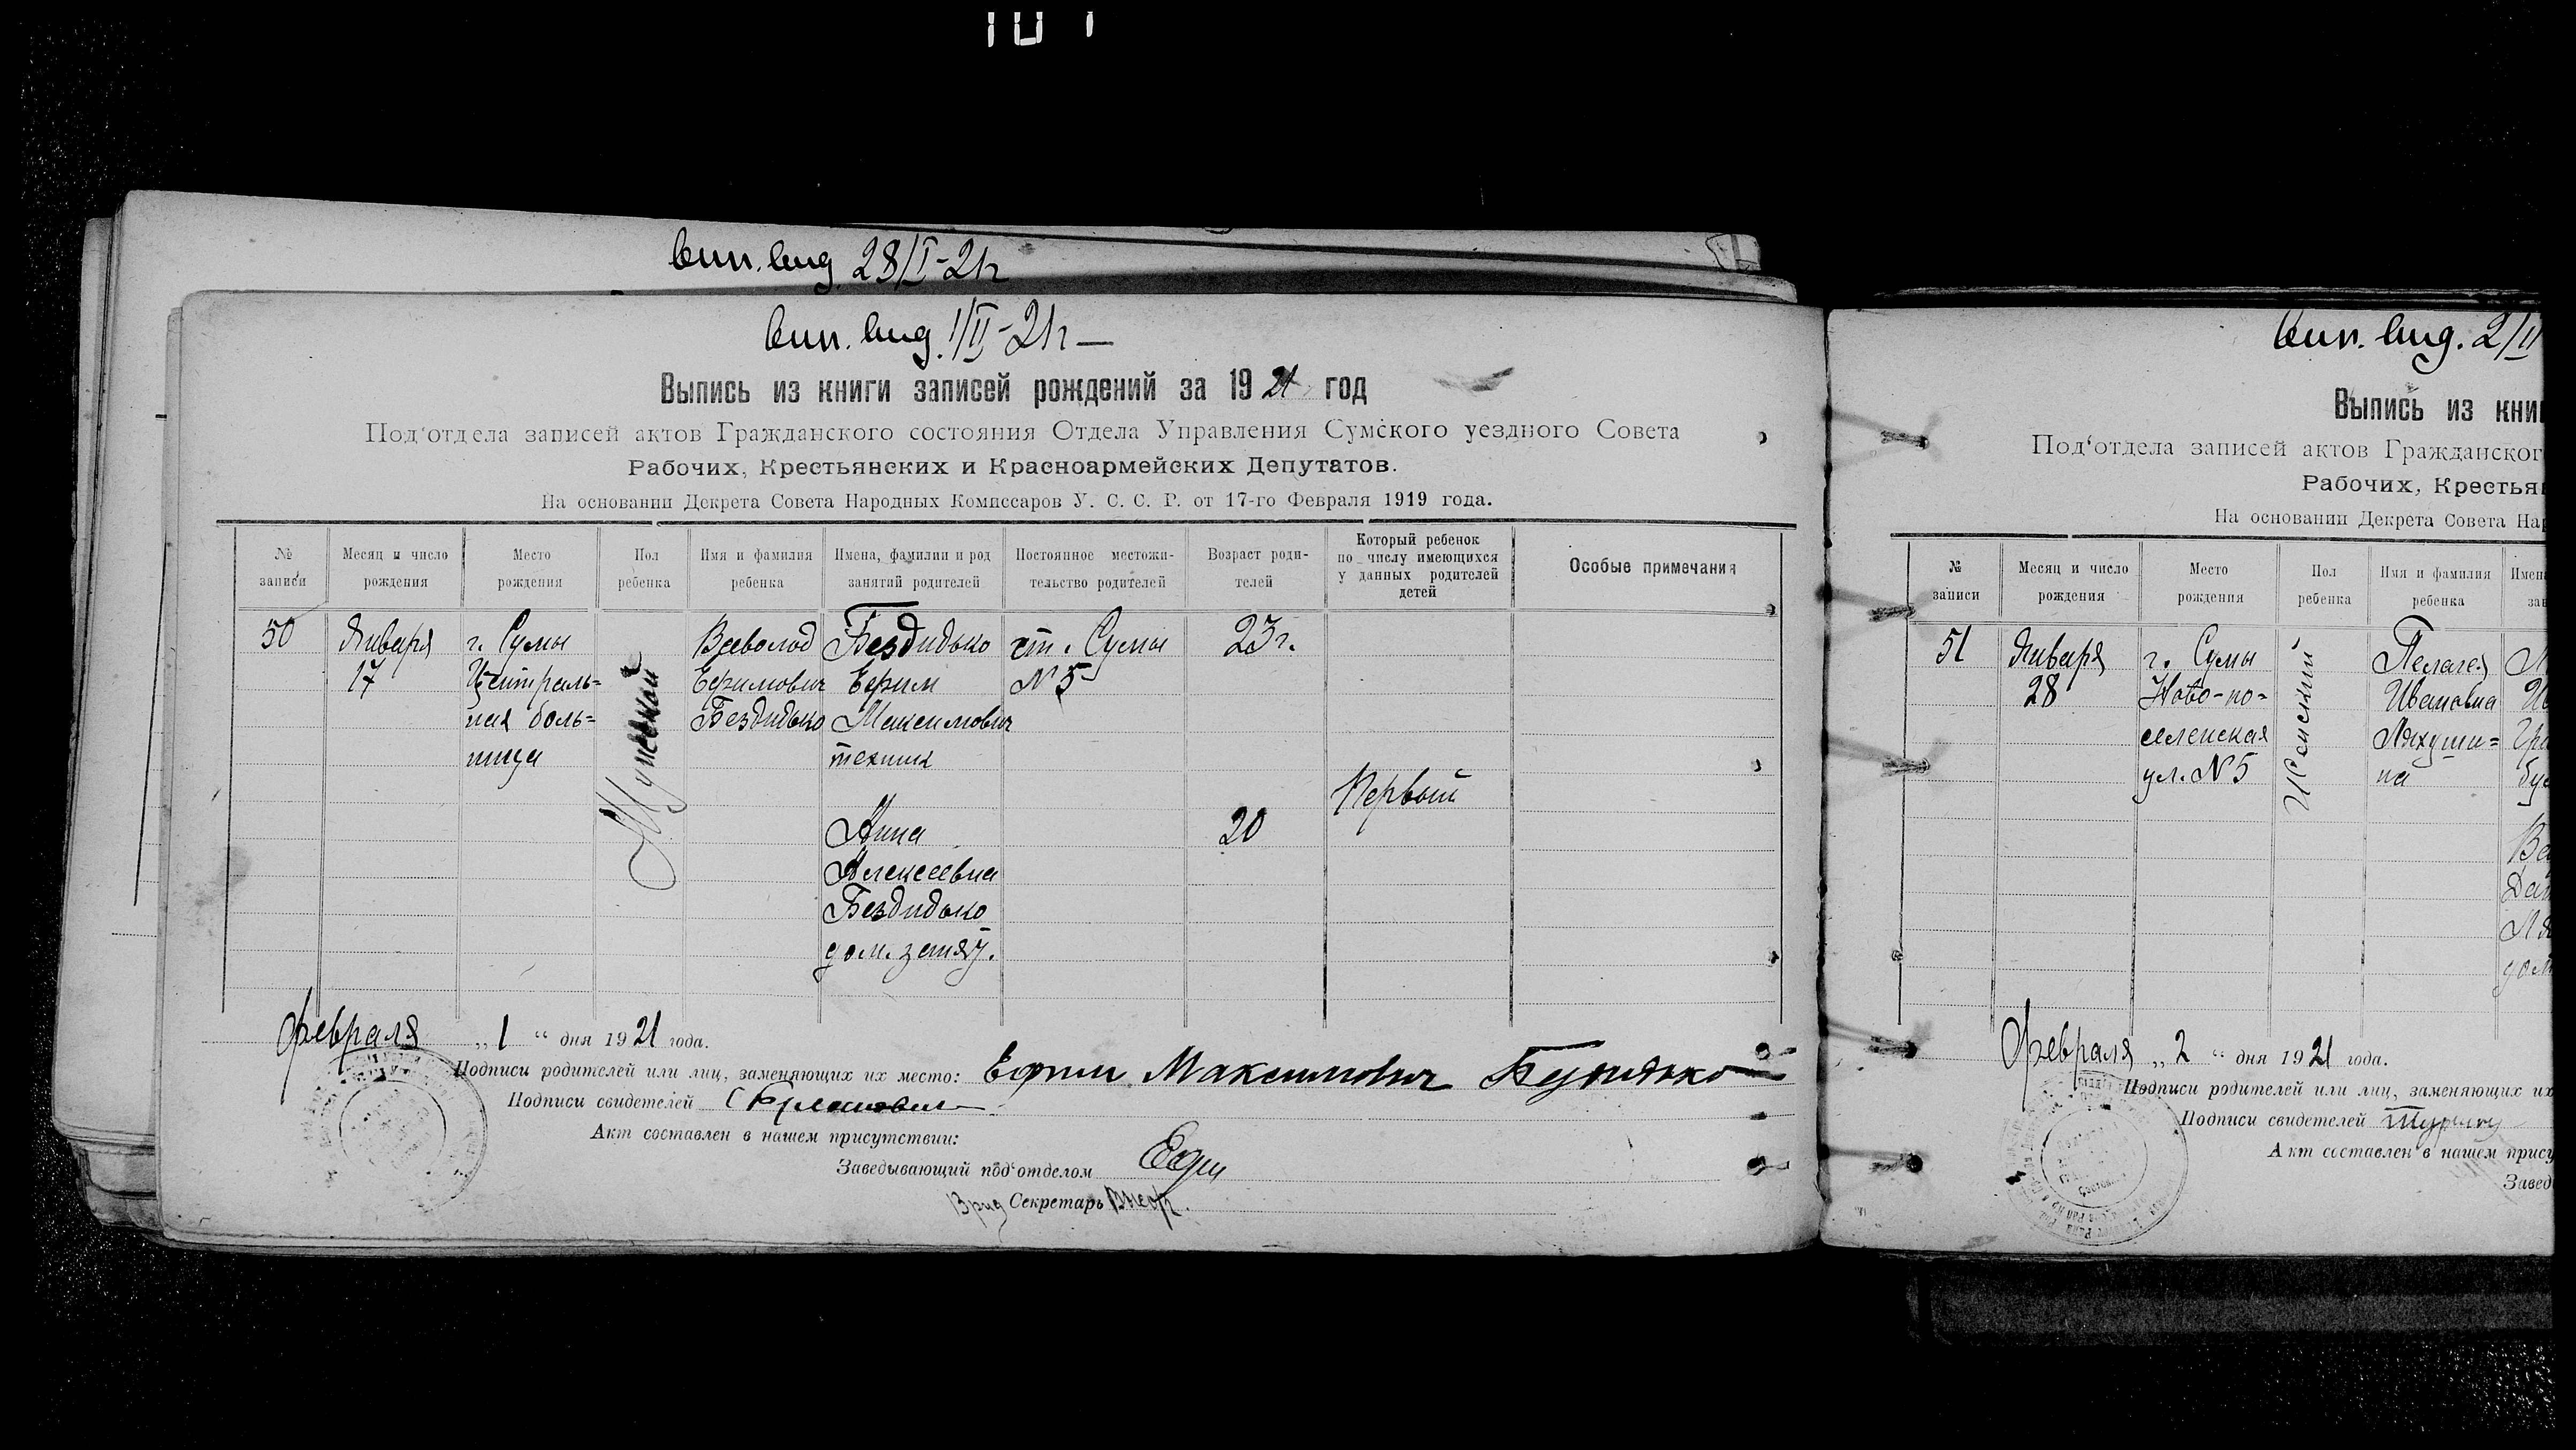 вып. выд. 28/I-21г
вып. выд. 1/II-21г
Выпись из книги записей рождений за 1921 год
Под'отдела записей актов Гражданского состояния Отдела Управления Сумского уездного Совета
Рабочих, Крестьянских и Красноармейских Депутатов.
На основании Декрета Совета Народных Комиссаров У. С. С. Р. от 17-го Февраля 1919 года.
№ записи
Месяц и число рождения
Место рождения
Пол ребенка
Имя и фамилия ребенка
Имена, фамилии и род занятий родителей
Постоянное местожительство родителей
Возраст родителей
Который ребенок по числу имеющихся у данных родителей детей
Особые примечания
50
Января
17
г. Сумы
Централь=
ная боль=
ница
Мужской
Всеволод
Ефимович
Бездидько
Бездидько
Ефим
Максимович
техник
Анна
Алексеевна
Бездидько
ст. Сумы
N 5
23 г.
20
Первый
Февраля „1“ дня 1921 года.
Подписи родителей или лиц, заменяющих их место: Ефим Максимович
Подписи свидетелей
Акт составлен в нашем присутствии:
Заведывающий под'отделом
Врид Секретарь
вып. выд. 2/II
Выпись из кни
Под'отдела записей актов Гражданског
Рабочих, Крестьян
На основании Декрета Совета Нар
№ записи
Месяц и число рождения
Место рождения
Пол ребенка
Имя и фамилия ребенка
Имен
зан
51
Января
28
г. Сумы
Ново-по=
селенская
ул. N 5
Женский
Пелагея
Ивановна
Ляхуши=
на
Февраля „2“ дня 1921 года.
Подписи родителей или лиц, заменяющих их
Подписи свидетелей
Акт составлен в нашем прису
Завед